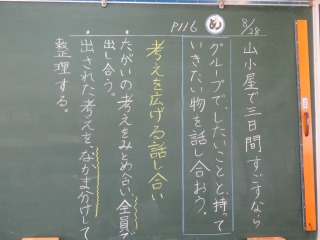 8/28
山小屋で三日間すごすなら
P116
め
グループで、したいことと、持って
いきたい物を話し合おう。
考えを広げる話し合い
・たがいの考えをみとめ合い、全員で
出し合う。
・出された考えを、なかま分けして
整理する。